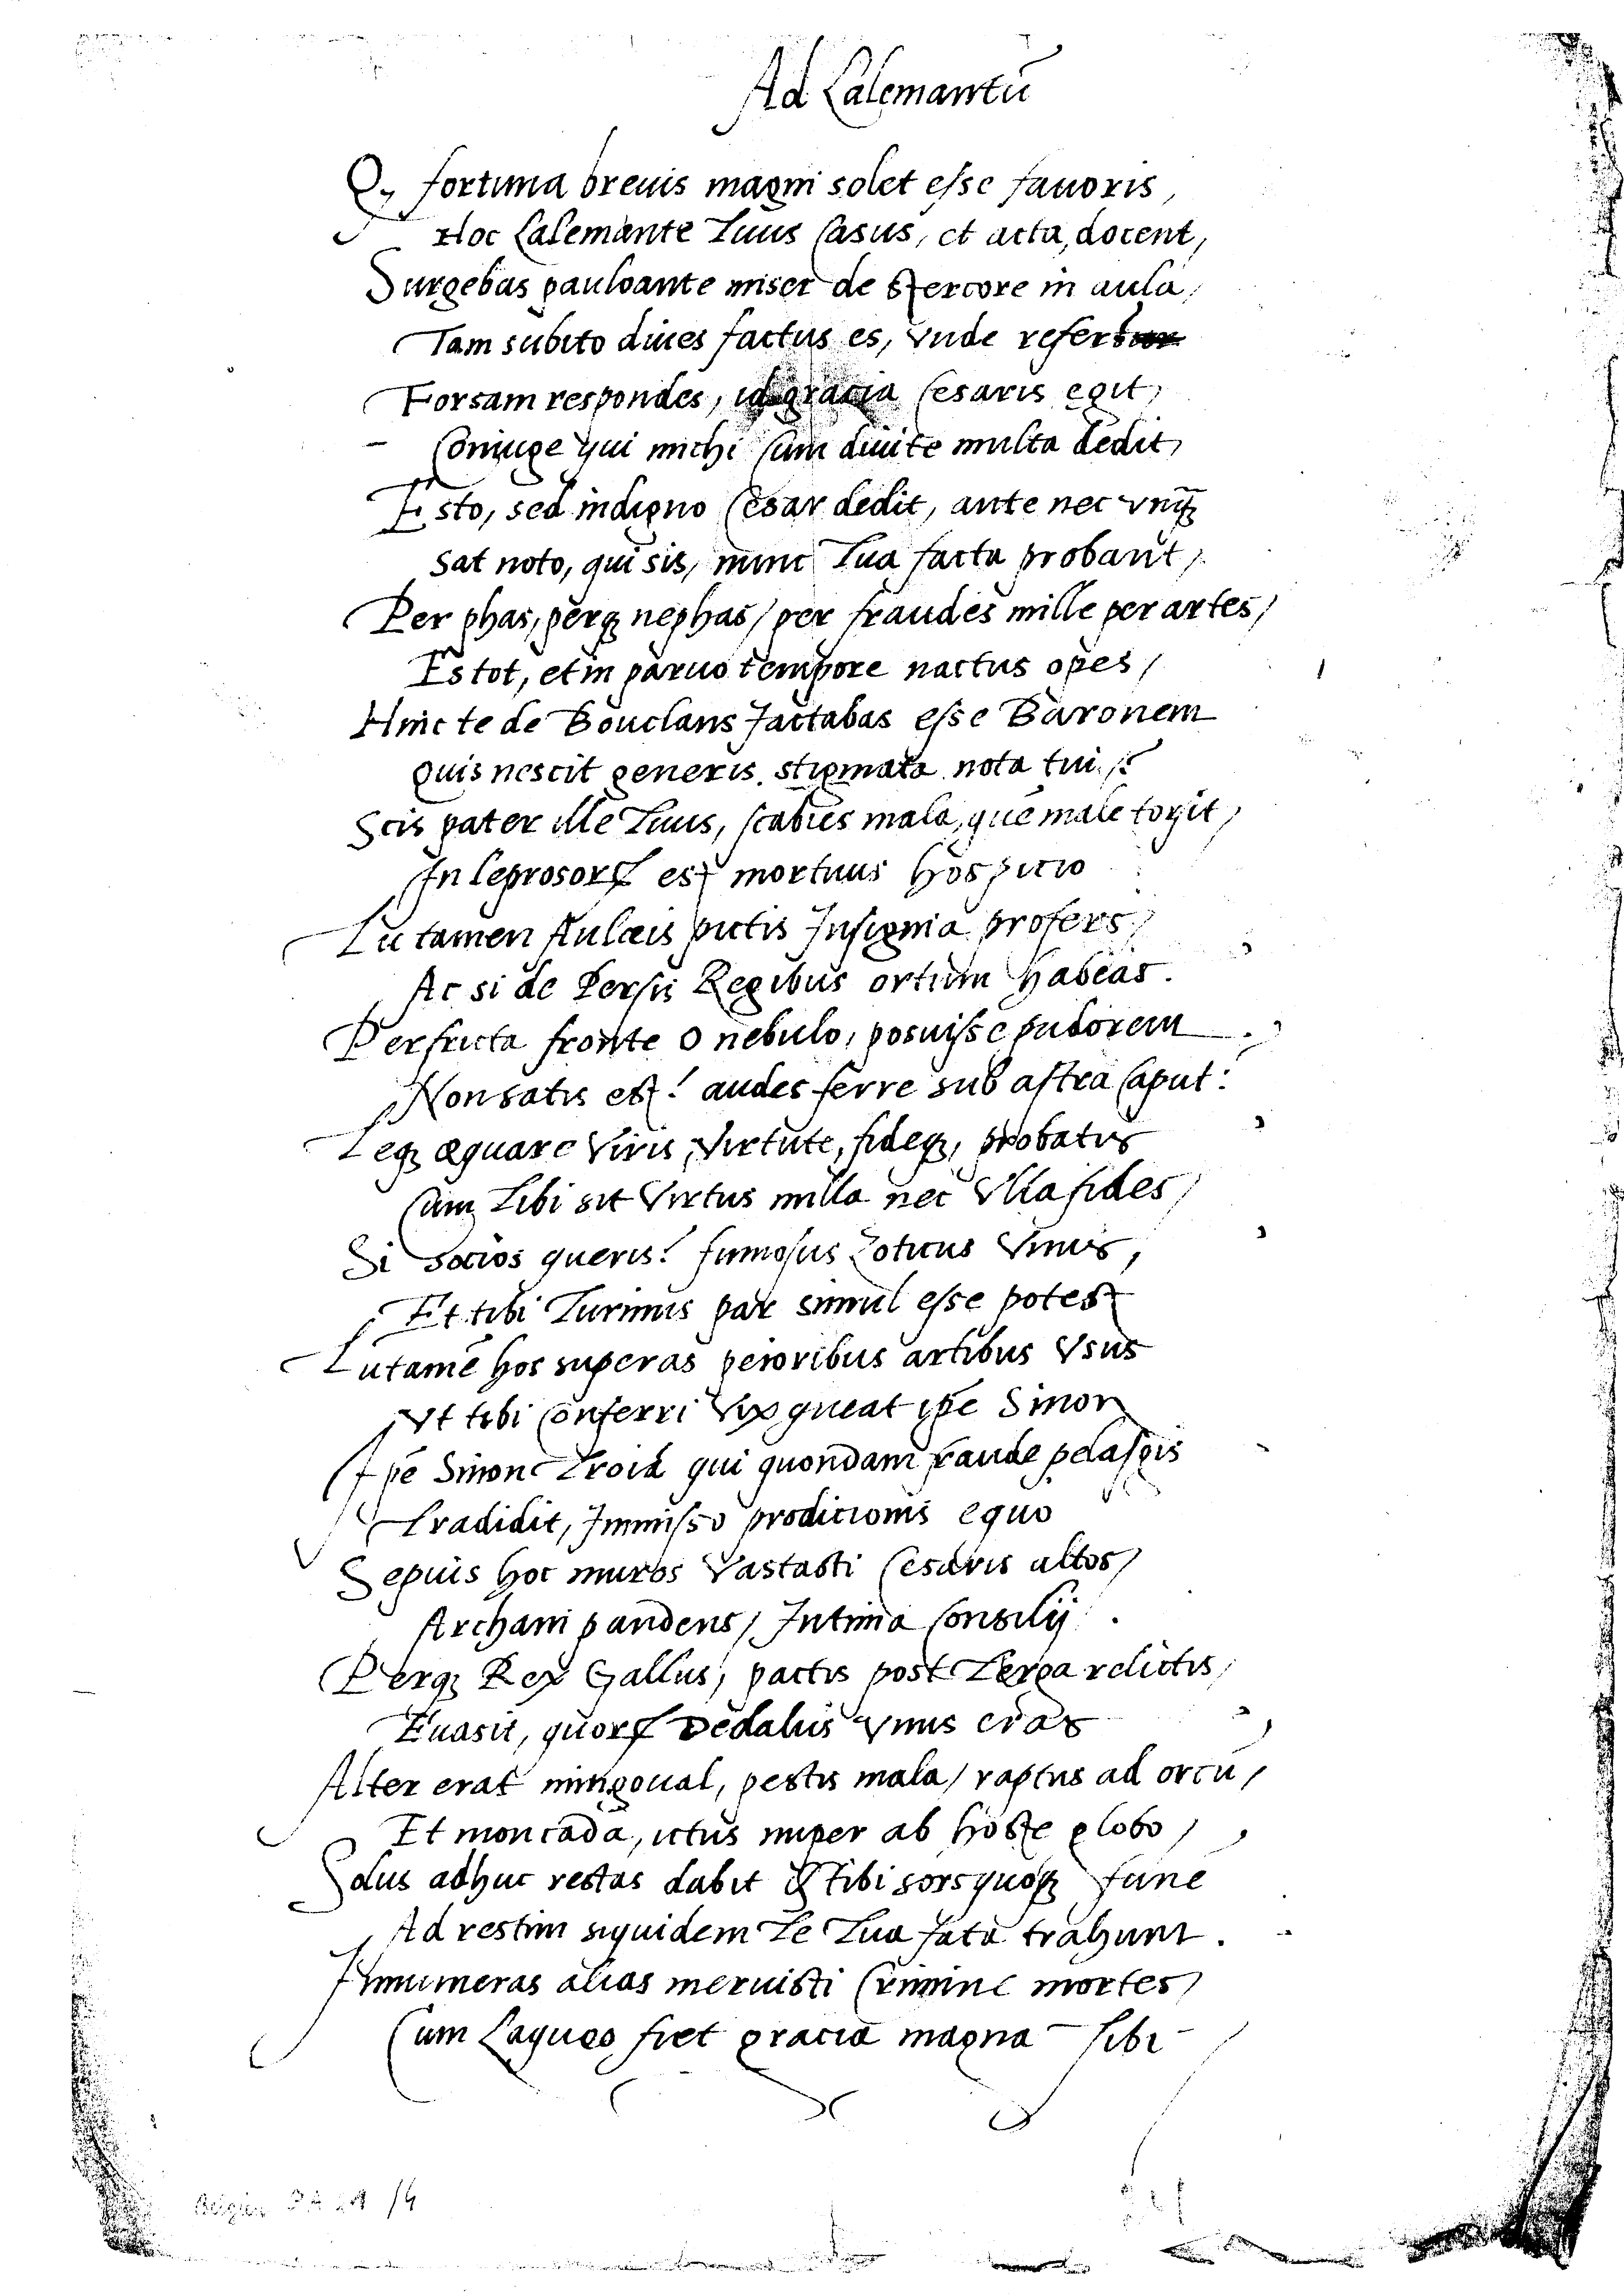 Ad Lalemantū
Q, fortuna breuis magni solet esse fauoris,
Hoc Lalemante Tuus Casus, et acta, docent,
Surgebas pauloante miser de stercore in aula,
Tam subito diues factus es, vnde refert
Forsam respondes, id gracia Cesaris egit,
Coniuge qui michi Cum diuite multa dedit,
Esto, sed indigno Cesar dedit, ante nec vnqꝫ
Sat noto, qui sis, nunc Tua facta probant,
Per phas, perqꝫ nephas / per fraudes mille per artes /
Es tot, et in paruo tempore nactus opes /
Hinc te de Bouclans Jactabas esse Baronem
Quis nescit generis stigmata nota tui?
Scis pater ille Tuus, scabies mala, quē male torsit,
In leprosorꝝ est mortuus hospicio
Tu tamen Aulæis pictis Insignia profers,
Ac si de Persis Regibus ortum habeas.
Perfricta fronte o nebulo, posuisse pudorem
Non satis est! audes ferre sub astra Caput:
Teqꝫ æquare Viris, Virtute, fideqꝫ, probatis
Cum Tibi sit Virtus nulla nec Vlla fides,
Si socios queris! fumosus Zoticus Vnus,
Et tibi Turinus par simul esse potest
Tu tamē hos superas peioribus artibus Vsus
Vt tibi Conferri Vix queat ipē Sinon
Ipē Sinon Troiā qui quondam fraude pelasgis
Tradidit, Immisso prodicionis equo
Sepius hoc muros Vastasti Cesaris altos,
Archani pandens / Intima Consilij.
Perqꝫ Rex Gallus, pactis post Terga relictis,
Euasit, quorꝝ Dedalus Vnus eras
Alter erat mingoual, pestis mala / raptus ad orcū /
Et moncada, ictus nuper ab hoste globo,
Solus adhuc restas dabit & tibi sors quoqꝫ funē
Ad restim siquidem Te Tua fata trahunt.
Innumeras alias meruisti Crimine mortes,
Cum Laqueo fiet gracia magna Tibi